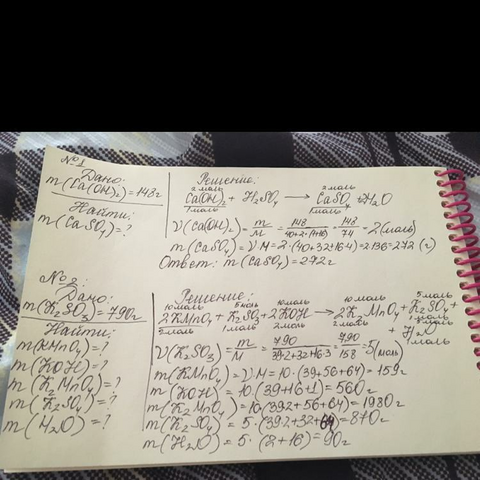 №1
Дано:
m(Ca(OH)₂)=148г
Найти:
m(CaSO₄)=?
Решение:
2 моль 2 моль
Ca(OH)₂ + H₂SO₄ → CaSO₄ + H₂O
1 моль 1 моль
ν(Ca(OH)₂) = m/M = 148/40+2·(1+16) = 148/74 = 2(моль)
m(CaSO₄) = ν·M = 2·(40+32+16·4) = 2·136 = 272 (г)
Ответ: m(CaSO₄) = 272г
№2:
Дано:
m(K₂SO₃) = 790г
Найти:
m(KMnO₄) = ?
m(KOH) = ?
m(K₂MnO₄) = ?
m(K₂SO₄) = ?
m(H₂O) = ?
Решение:
10 моль 5 моль 10 моль 10 моль 5 моль
2KMnO₄ + K₂SO₃ + 2KOH → 2K₂MnO₄ + K₂SO₄ +
2 моль 1 моль 2 моль 2 моль 1 моль
+ H₂O
1 моль
ν(K₂SO₃) = m/M = 790/39·2+32+16·3 = 790/158 = 5(моль)
m(KMnO₄) = ν·M = 10·(39+56+64) = 159г
m(KOH) = 10·(39+16+1) = 560г
m(K₂MnO₄) = 10·(39·2+56+64) = 1980г
m(K₂SO₄) = 5·(39·2+32+64) = 870г
m(H₂O) = 5·(2+16) = 90г